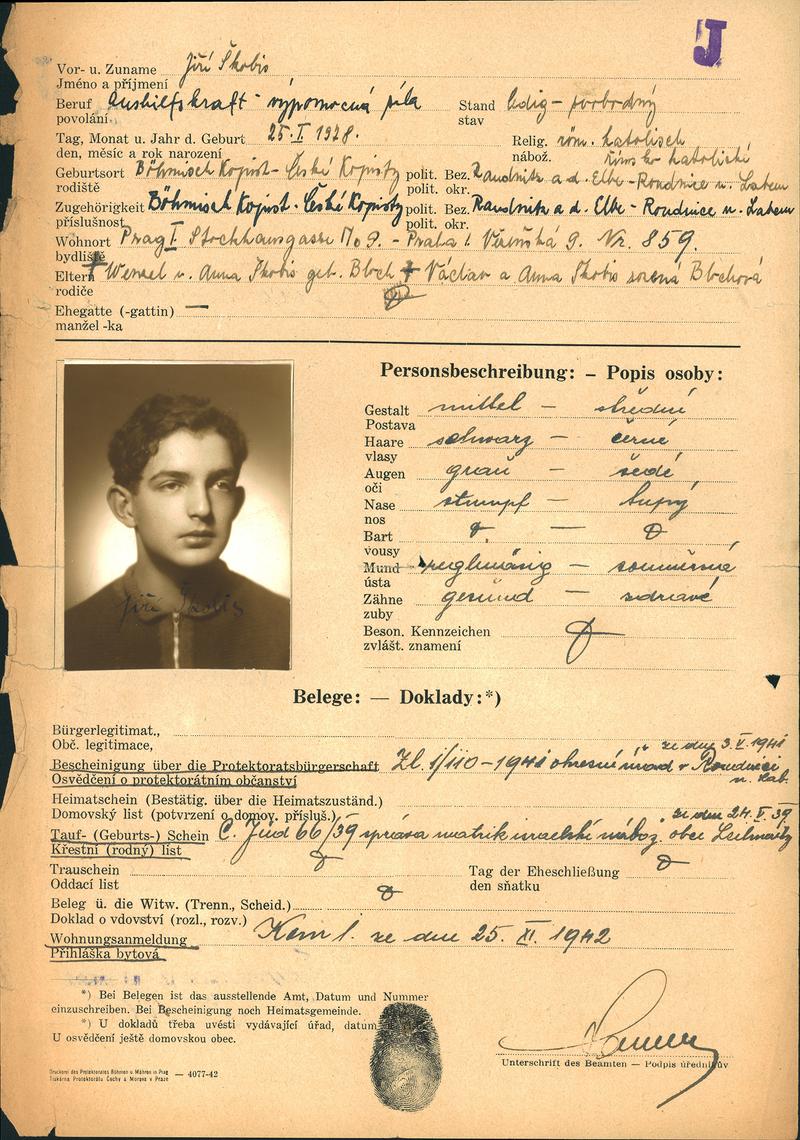 J
Vor- u. Zuname Jiří Škobis
Jméno a příjmení
Beruf Aushilfskraft - výpomocná síla
povolání
Stand ledig - svobodný
stav
Tag, Monat u. Jahr d. Geburt 25. I. 1928.
den, měsíc a rok narození
Relig. röm. katolisch
nábož. římsko-katolické
Geburtsort Böhmisch Kopist - České Kopisty polit. Bez. Raudnitz a d. Elbe - Roudnice n. Labem
rodiště polit. okr.
Zugehörigkeit Böhmisch Kopist - České Kopisty polit. Bez. Raudnitz a d. Elbe - Roudnice n. Labem
příslušnost polit. okr.
Wohnort Prag I. Stockhausgasse No 9. - Praha I. Vězeňská 9. Nr. 859.
bydliště
Eltern Wenzel u. Anna Škobis geb. Bloch Václav a Anna Škobis rozená Blochová
rodiče
Ehegatte (-gattin) —
manžel -ka
Personsbeschreibung: – Popis osoby:
Gestalt mittel — střední
Postava
Haare schwarz — černé
vlasy
Augen grau — šedé
oči
Nase stumpf — tupý
nos
Bart —
vousy
Mund regelmäsig — souměrná
ústa
Zähne gesund — zdravé
zuby
Beson. Kennzeichen
zvlášt. znamení
Jiří Škobis
Belege: — Doklady:*)
Bürgerlegitimat.,
Obč. legitimace,
ze dne 3. V. 1941
Bescheinigung über die Protektoratsbürgerschaft Zl. 1/110-1941 okresní úřad v Roudnici
Osvědčení o protektorátním občanství n. Lab.
Heimatschein (Bestätig. über die Heimatszuständ.)
Domovský list (potvrzení o domov. přísluš.)
ze dne 24. V. 39
Tauf- (Geburts-) Schein Č. Jud 66/39 správa matrik israelské nábož. obce Leitmeritz
Křestní (rodný) list
Trauschein
Oddací list
Tag der Eheschließung
den sňatku
Beleg ü. die Witw. (Trenn., Scheid.)
Doklad o vdovství (rozl., rozv.)
Wohnungsanmeldung Kom I. ze dne 25. XI. 1942
Přihláška bytová
*) Bei Belegen ist das ausstellende Amt, Datum und Nummer
einzuschreiben. Bei Bescheinigung noch Heimatsgemeinde.
*) U dokladů třeba uvésti vydávající úřad, datum
U osvědčení ještě domovskou obec.
Unterschrift des Beamten — Podpis úředníkův
Druckerei des Protektorates Böhmen u. Mähren in Prag
Tiskárna Protektorátu Čechy a Morava v Praze — 4077-42